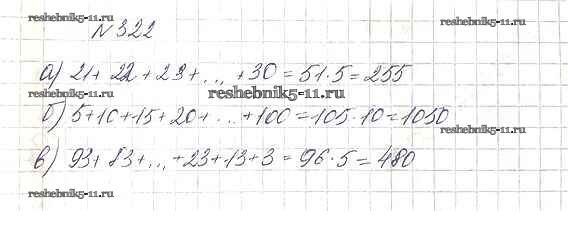 reshebnik5-11.ru
№322
reshebnik5-11.ru
а) 21 + 22 + 23 + ... + 30 = 51 · 5 = 255
reshebnik5-11.ru reshebnik5-11.ru
б) 5+10+15+20+ ... +100 = 105 · 10 = 1050
reshebnik5-11.ru
в) 93 + 83 + ... + 23 + 13 + 3 = 96 · 5 = 480
reshebnik5-11.ru